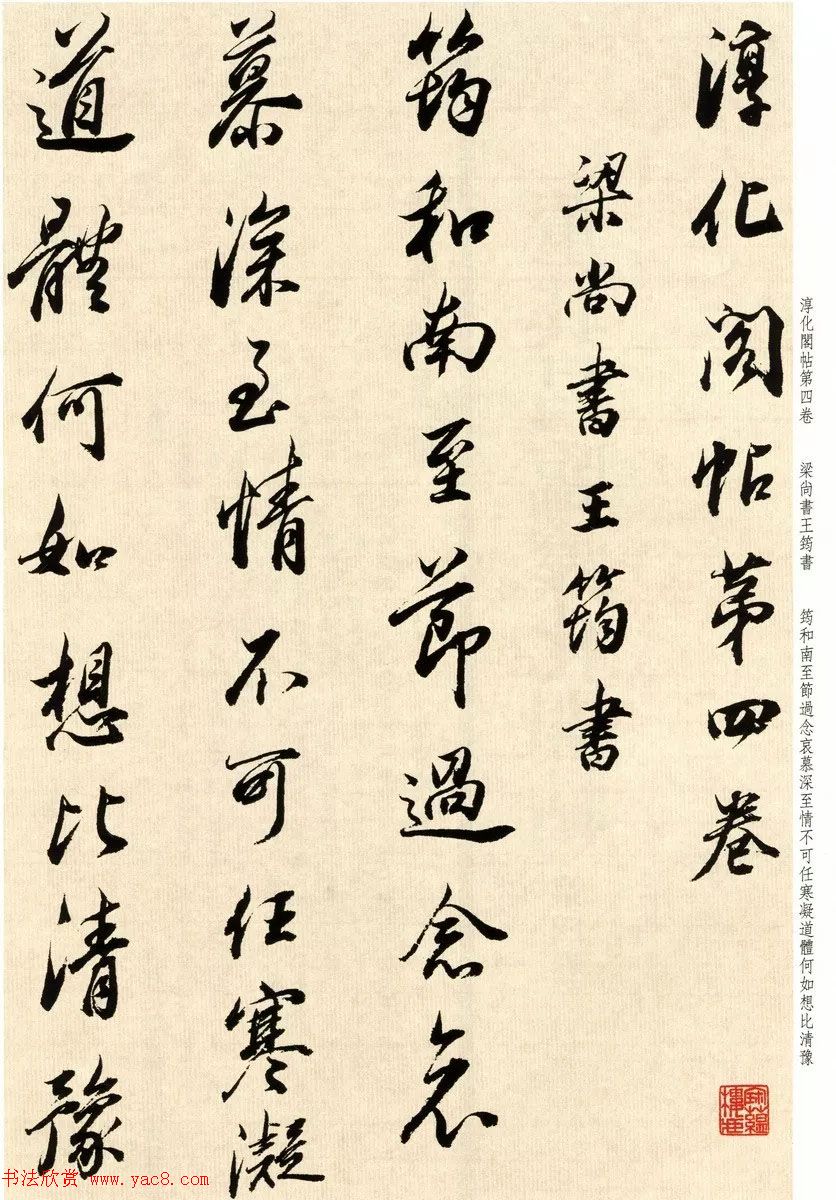 淳化閣帖第四卷
梁尚書王筠書
筠和南至節過念哀
慕深至情不可任寒凝
道體何如想比清豫
淳化閣帖第四卷 梁尚書王筠書 筠和南至節過念哀慕深至情不可任寒凝道體何如想比清豫
书法欣赏www.yac8.com